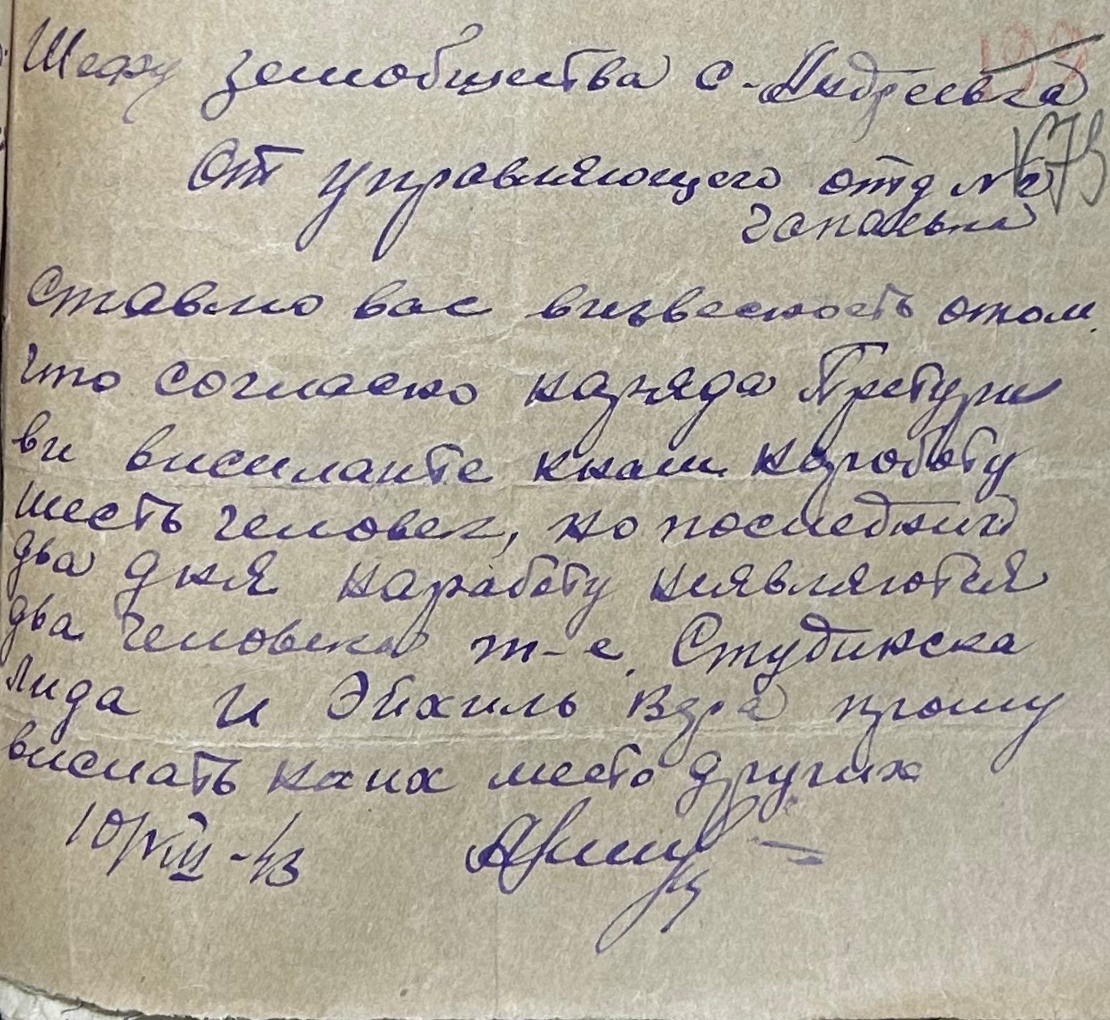 Шефу земобщества с-Андреевка
198
От управляющего отд №2
173
Ставлю вас визвесность отом
что согласно наряда
ви висилаите кнам наработу
шесть человек, но последнии
два дня наработу неявляются
два человека т-е. Студинска
Лида и Эйхиль Вера прошу
вислать наих место других
10/VIII-43